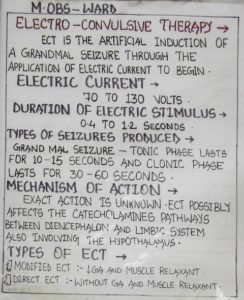 M.OBS-WARD
ELECTRO-CONVULSIVE THERAPY →
ECT IS THE ARTIFICIAL INDUCTION OF
A GRANDMAL SEIZURE THROUGH THE
APPLICATION OF ELECTRIC CURRENT TO BEGIN.
ELECTRIC CURRENT →
70 TO 130 VOLTS.
DURATION OF ELECTRIC STIMULUS →
0.4 TO 1.2 SECONDS.
TYPES OF SEIZURES PRODUCED →
GRAND MAL SEIZURE - TONIC PHASE LASTS
FOR 10-15 SECONDS AND CLONIC PHASE
LASTS FOR 30-60 SECONDS.
MECHANISM OF ACTION →
EXACT ACTION IS UNKNOWN. ECT POSSIBLY
AFFECTS THE CATECHOLAMINES PATHWAYS
BETWEEN DIENCEPHALON AND LIMBIC SYSTEM
ALSO INVOLVING THE HYPOTHALAMUS.
TYPES OF ECT →
1] MODIFIED ECT :- AND MUSCLE RELAXANT
2] DIRECT ECT :- WITHOUT GA AND MUSCLE RELAXANT